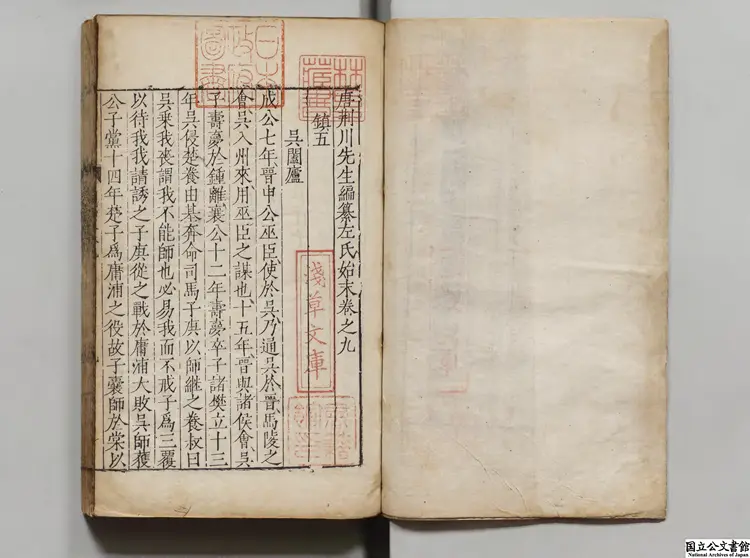 唐荊川先生編纂左氏始末卷之九
鎮五
吳闔廬
成公七年晉申公巫臣使於吳乃通吳於晉馬陵之
會吳入州來用巫臣之謀也十五年晉與諸侯會吳
子壽夢於鍾離襄公十二年壽夢卒子諸樊立十三
年吳侵楚養由基奔命司馬子庚以師繼之養叔曰
吳乘我喪謂我不能師也必易我而不戒子爲三覆
以待我我請誘之子庚從之戰於庸浦大敗吳師獲
公子黨十四年楚子爲庸浦之役故子囊師於棠以
日本政府圖書
淺草文庫
国立公文書館
National Archives of Japan